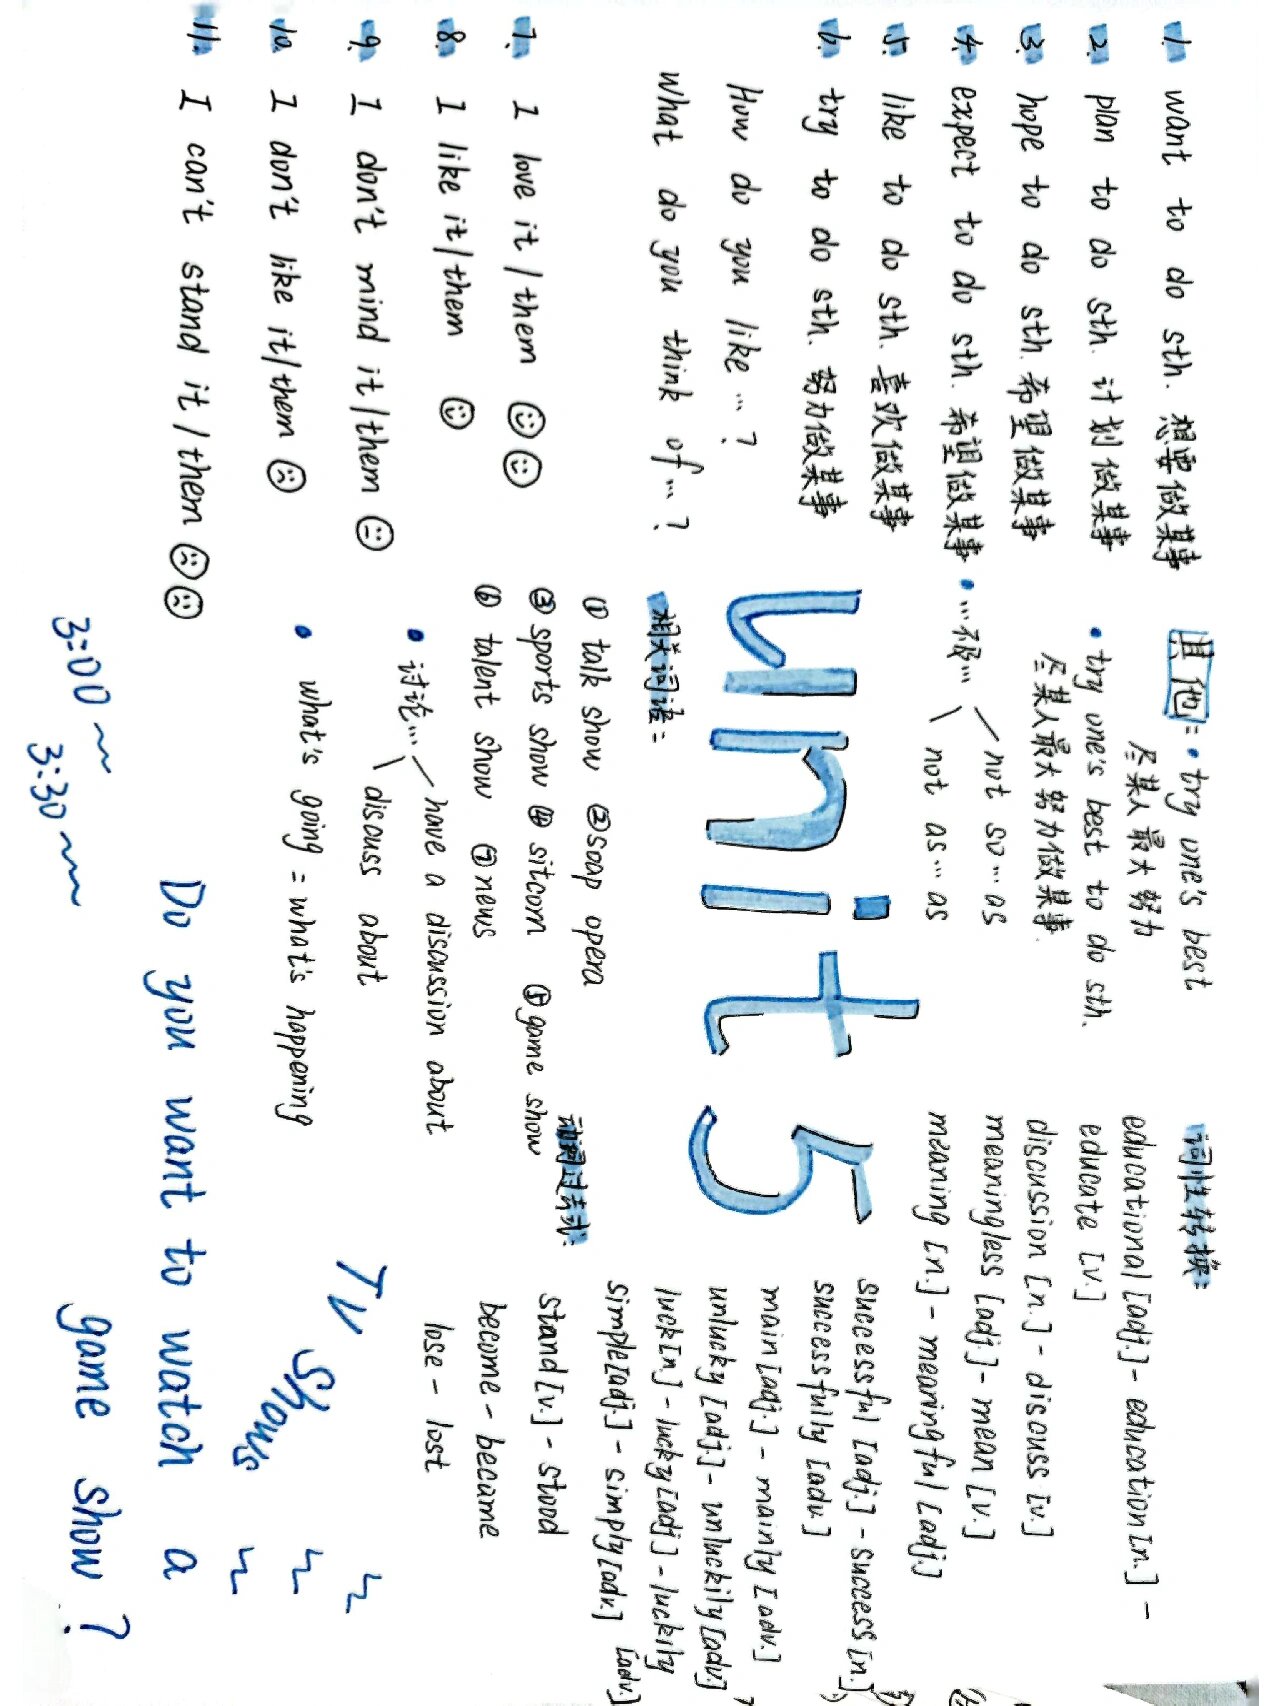 1. want to do sth. 想要做某事
2. plan to do sth. 计划做某事
3. hope to do sth. 希望做某事
4. expect to do sth. 希望做某事
5. like to do sth. 喜欢做某事
6. try to do sth. 努力做某事
How do you like…?
What do you think of…?
7. I love it/them
8. I like it/them
9. I don't mind it/them
10. I don't like it/them
11. I can't stand it/them
其他: • try one's best
尽某人最大努力
• try one's best to do sth.
尽某人最大努力做某事.
• …不假… not so…as
not as…as
Unit 5
相关词语:
① talk show ② soap opera
③ sports show ④ sitcom ⑤ game show
⑥ talent show ⑦ news
• 讨论… have a discussion about
discuss about
• what's going = what's happening
3:00~
3:30~
词性转换:
educational [adj.] - education [n.] -
educate [v.]
discussion [n.] - discuss [v.]
meaningless [adj.] - mean [v.]
meaning [n.] - meaningful [adj.]
successful [adj.] - success [n.]
successfully [adv.]
main [adj.] - mainly [adv.]
unlucky [adj.] - unluckily [adv.]
luck [n.] - lucky [adj.] - luckily
[adv.]
simple [adj.] - simply [adv.]
动词过去式:
stand [v.] - stood
become - became
lose - lost
TV
Shows
Do you want to watch a
game show?